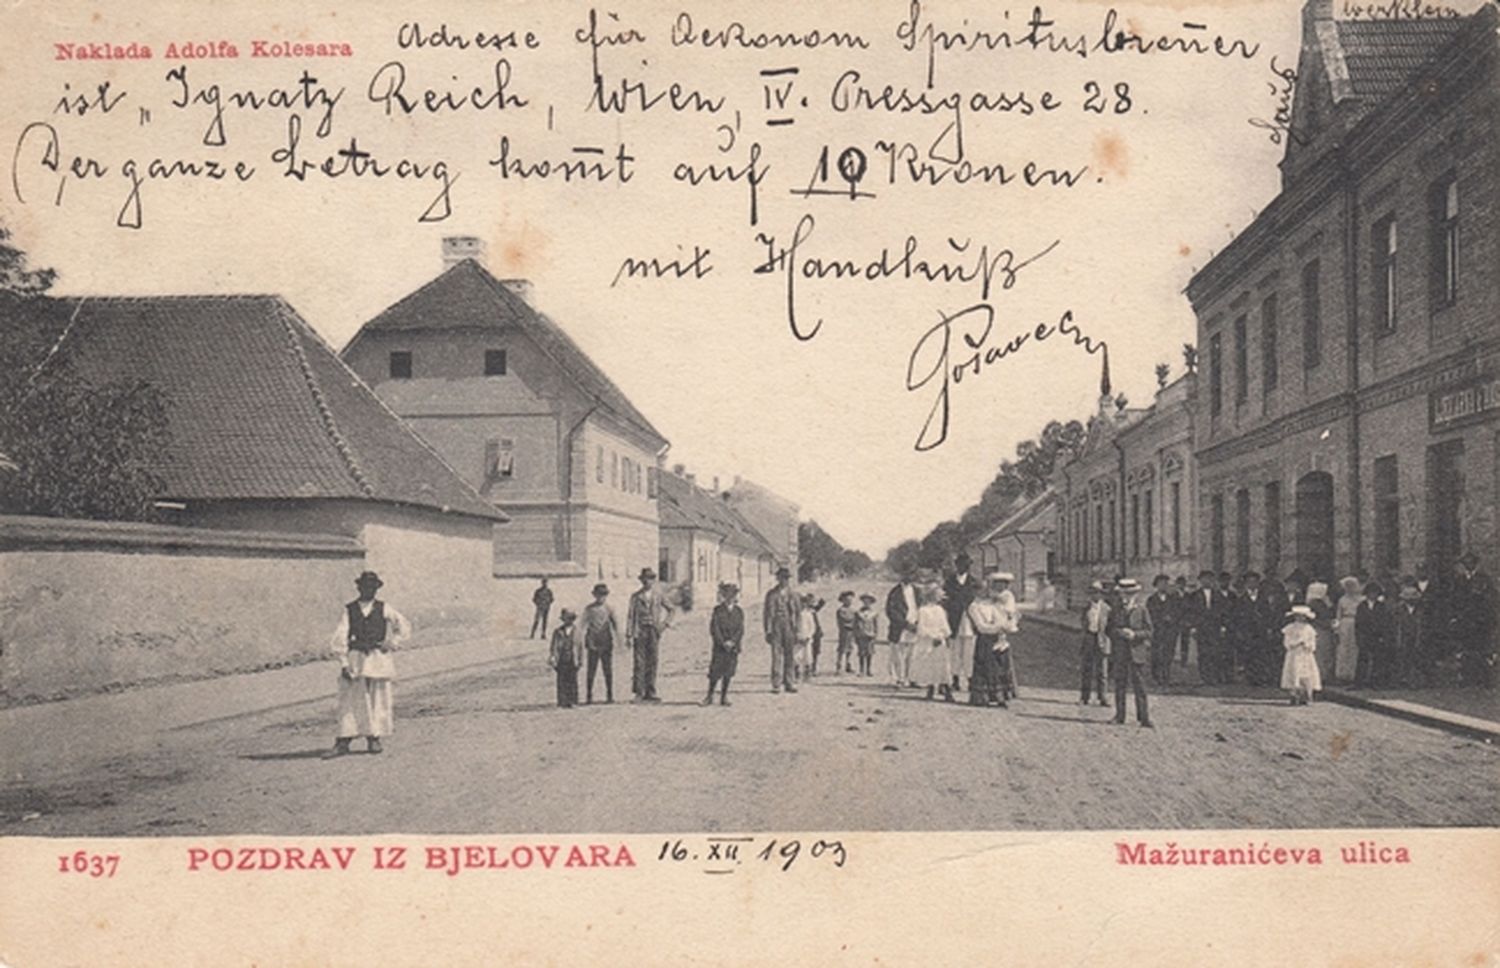 Naklada Adolfa Kolesara
Adresse für Oekonom Spiritusbren̄er
ist „Ignatz Reich, Wien, IV. Pressgasse 28.
Der ganze Betrag kom̄t auf 10 Kronen.
mit Handkuß
Posavec
1637 POZDRAV IZ BJELOVARA 16. XII. 1903 Mažuranićeva ulica